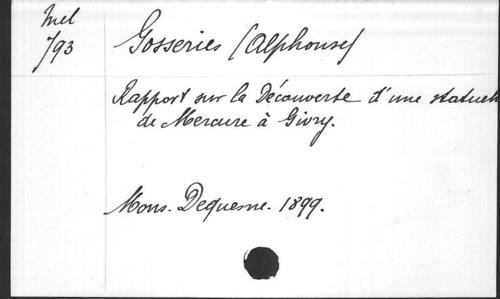 Mel
793
Gosseries (Alphonse)
Rapport sur la Découverte d'une statuett
de Mercure à Givry.
Mons. Dequesne. 1899.